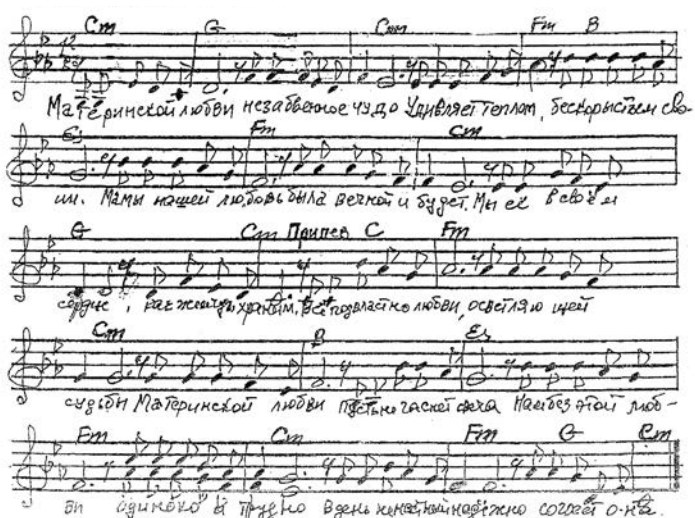 Cm G Cm Fm B
Материнской любви незабвенное чудо Удивляет теплом, бескорыстьем сво-
Es Fm Cm
им. Мамы нашей любовь была вечной и будет. Мы её в своём
G Cm Припев C Fm
сердце, как жемчуг, храним. Всё подвластно любви, осветляющей
Cm B Es
судьбы Материнской любви пусть не гаснет свеча Нам без этой люб-
Fm Cm Fm G Cm
ви одиноко и трудно В день ненастный надёжно согреет она.